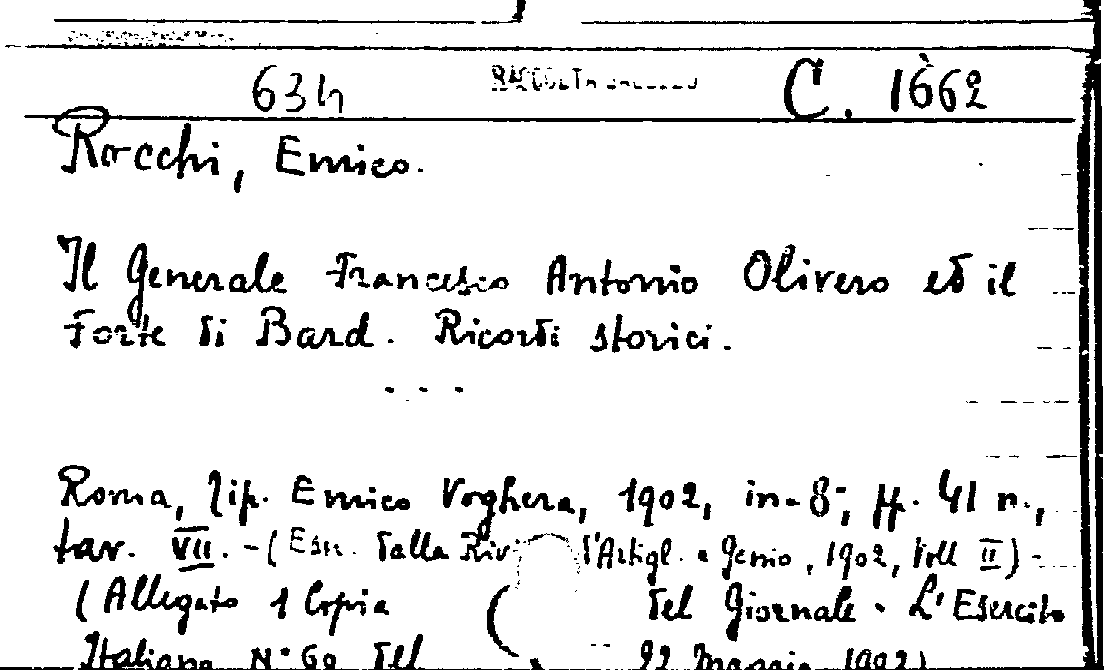 634 RACCOLTA C. 1662
Rocchi, Enrico.
Il Generale Francesco Antonio Olivero ed il
Forte di Bard. Ricordi storici.
- - -
Roma, Tip. Enrico Voghera, 1902, in-8°, pp. 41 n.,
tav. VII. - (Estr. dalla Riv. d'Artigl. e Genio, 1902, Voll II) -
(Allegato 1 Copia del Giornale - L'Esercito
Italiano N° 60 del 22 Maggio 1902)